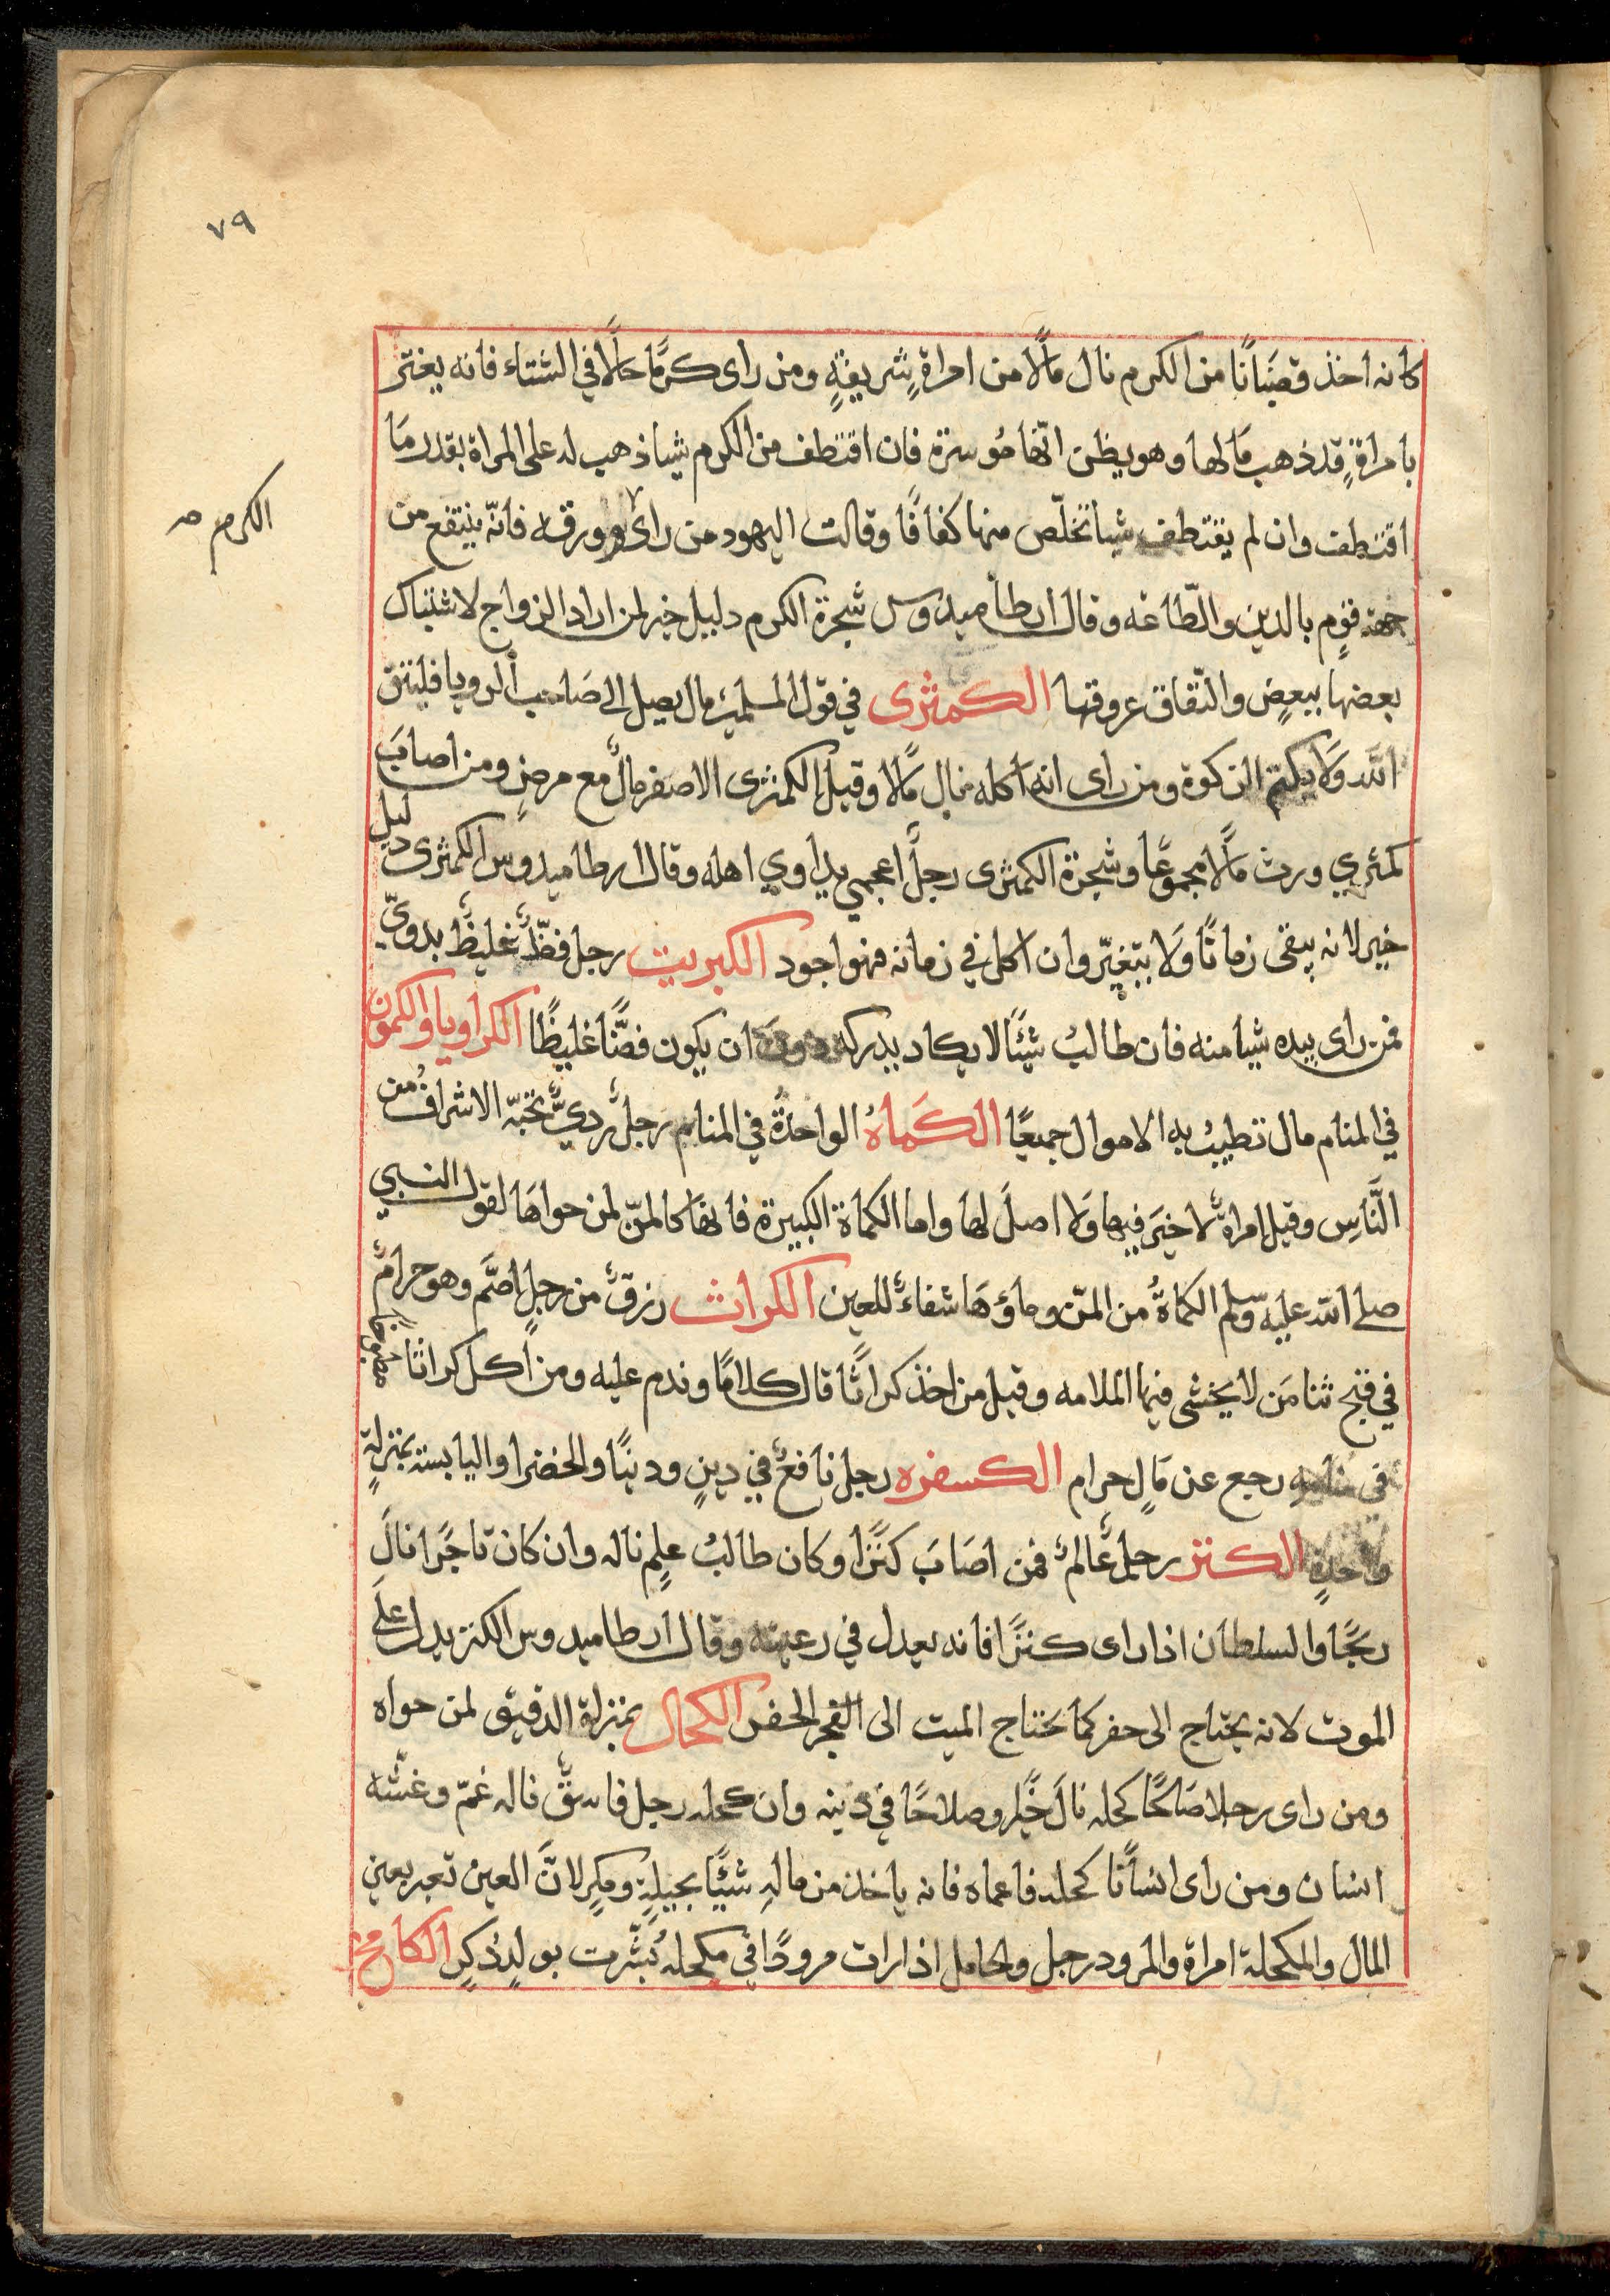 ٧٩
كانه اخذ قضبانا من الكرم نال مالًا من امراةٍ شريفةٍ ومن راى كرمًا حاملًا في الشتاء فانه يغتر
بامراةٍ قد ذهب مَالها وهو يظن انّها مُوسرة فان اقتطف من الكرم شيا ذهب له على المراة بقدر مَا
اقتطف وان لم يقتطف شيا تخلّص منها كفافًا وقالت اليهود من راى ورقه فانّه ينتفع من
الكرم صح
جهة قومٍ بالدين والطّاعه وقال ارطاميدوس شجرة الكرم دليل خير لمن اراد الزواج لاشتباك
بعضها ببعضٍ والتفاق عروقها الكمثرى في قول المسلمين مال يصل الى صَاحب الرويا فليتق
الله وَلا يكتم الزكوة ومن راى انه اكله نال مَالًا وقيل الكمثرى الاصفر مالٌ مع مرضٍ ومن اصابَ
كمثري ورث مَالًا مجموعًا وشجرة الكمثرى رجلٌ اعجمي يداوي اهله وقال ارطاميدوس الكمثرى دليل
خير لانه يبقى زمانًا وَلا يتغيّر وان اكل في زمانه فهو اجود الكبريت رجل فظٌّ غليظٌ بدويّ
فمن راى بيده شيا منه فان طالبُ شيئًا لا يكاد يدركه دونَ ان يكون فضًّا غليظًا الكراويا والكمون
في المنام مال تطيبُ به الاموال جميعًا الكَماةُ الواحدةُ في المنام رجلٌ رديٌّ تحبّه الاشرافُ من
النَّاسِ وقيل امراةٌ لا خيَر فيها وَلا اصلَ لها واما الكماة الكبيرة فانها كالمنّ لمن حواهَا لقول النبي
صلى الله عليه وسلم الكماةُ من المنّ وماؤهَا شفاءٌ للعين الكراث رزقٌ من رجلٍ اصَّم وهو حرامٌ
في قبح ثنا مَن لا يخشى فيها الملامه وقيل من اخذ كراثًا قال كلامًا وندم عليه ومن اكل كراثا مطبوخًا
في منامه رجع عن مَالٍ حرام الكسفره رجل نافعٌ في دينٍ ودنيًا والخضرا واليابسة بمنزلةٍ
واحدةٍ الكنز رجل عَالمٌ فمن اصَابَ كنَزًا وكان طالبُ علمٍ ناله وان كان تاجًرا نالَ
ربحًا والسلطان اذا راى كنزًا فانه يعدل في رعيته وقال ارطاميدوس الكنز يدل علَى
الموت لانه يحتاج الى حفر كما يحتاج الميت الى القبر الحفر الكحال بمنزلة الدقيق لمن حواه
ومن راى رجلا صَالحًا كحله نالَ خيًرا وصلاحًا في دينه وان كحله رجل فاسقٌ ناله غمّ وغشّه
انسان ومن راى انسانًا كحله فاعماه فانه ياخذ من ماله شيئًا بحيلةٍ ومكرٍ لانّ العين تعبر بعين
المال والمكحلة امراة والمرود رجل والحامل اذا رات مرودًا في مكحلة بُشّرت بولدٍ ذكرٍ الكامخ